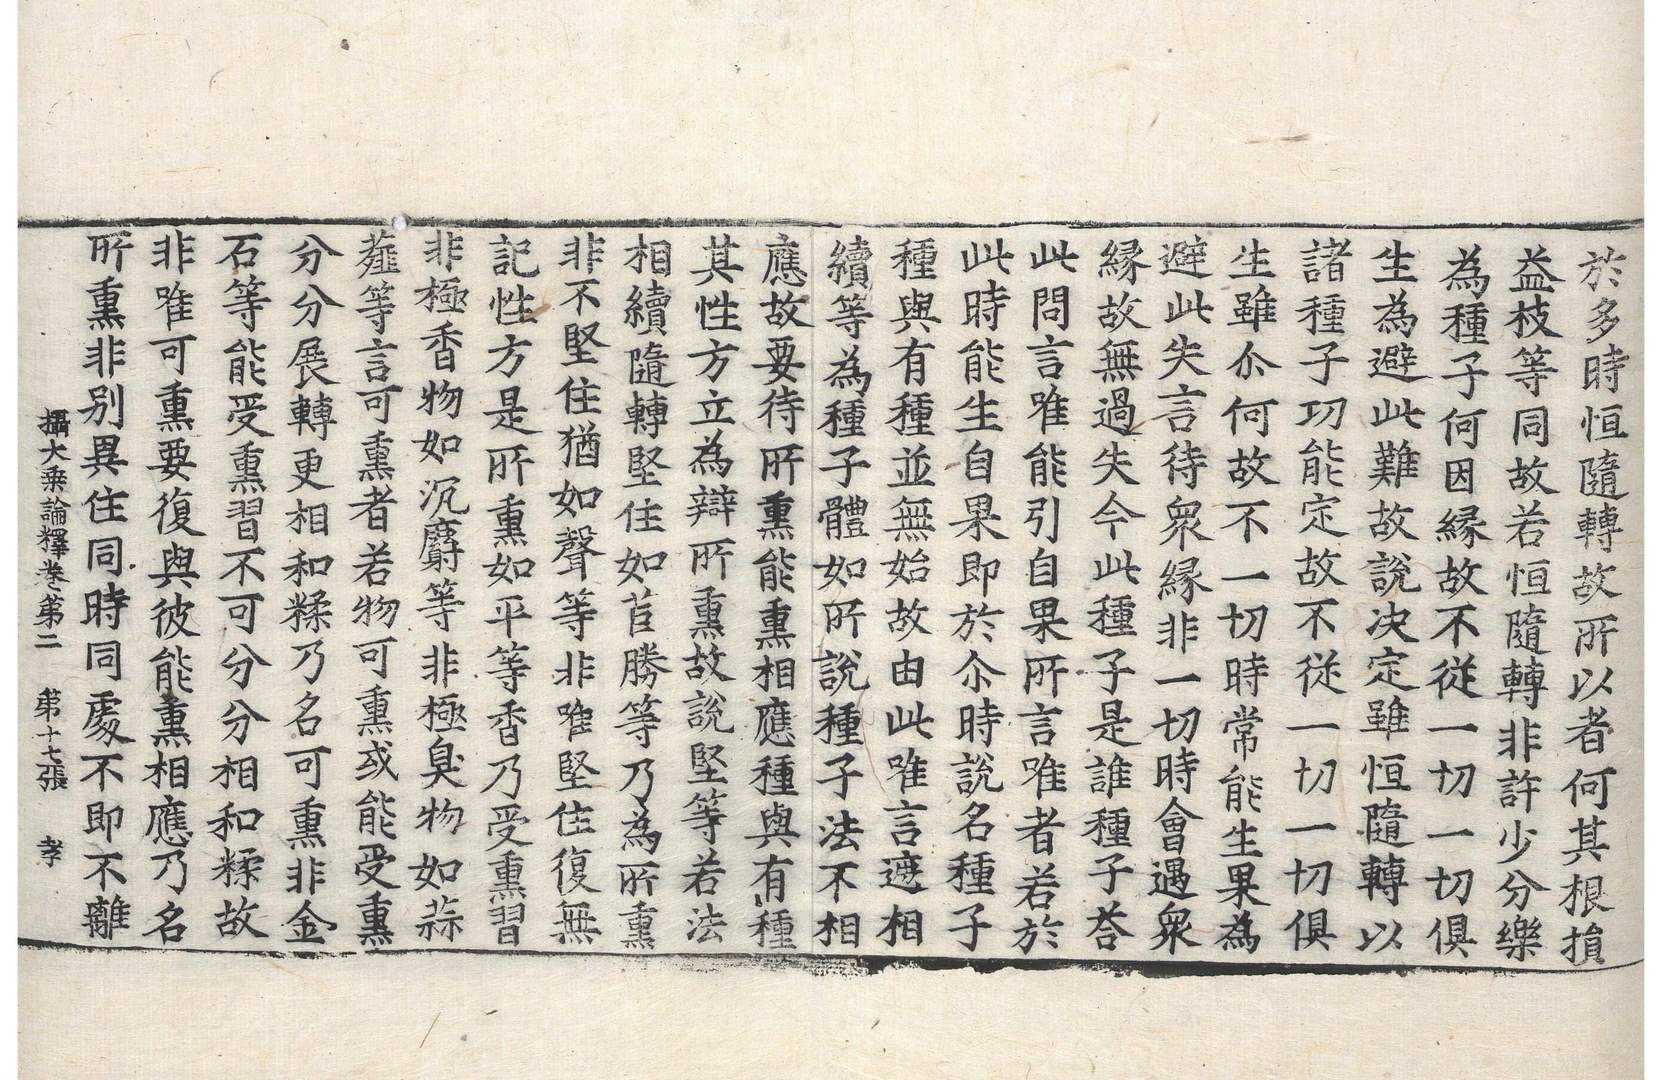 於多時恒隨轉故所以者何其根損
益枝等同故若恒隨轉非許少分樂
為種子何因縁故不從一切一切俱
生為避此難故說决定雖恒隨轉以
諸種子功能定故不從一切一切俱
生雖尒何故不一切時常能生果為
避此失言待衆縁非一切時會遇衆
縁故無過失今此種子是誰種子荅
此問言唯能引自果所言唯者若於
此時能生自果即於尒時說名種子
種與有種並無始故由此唯言遮相
續等為種子體如所說種子法不相
應故要待所熏能熏相應種與有種
其性方立為辯所熏故說堅等若法
相續隨轉堅住如苣勝等乃為所熏
非不堅住猶如聲等非唯堅住復無
記性方是所熏如平等香乃受熏習
非極香物如沉麝等非極臭物如蒜
薤等言可熏者若物可熏或能受熏
分分展轉更相和糅乃名可熏非金
石等能受熏習不可分分相和糅故
非唯可熏要復與彼能熏相應乃名
所熏非別異住同時同處不即不離
攝大乗論釋卷第二 第十七張 孝